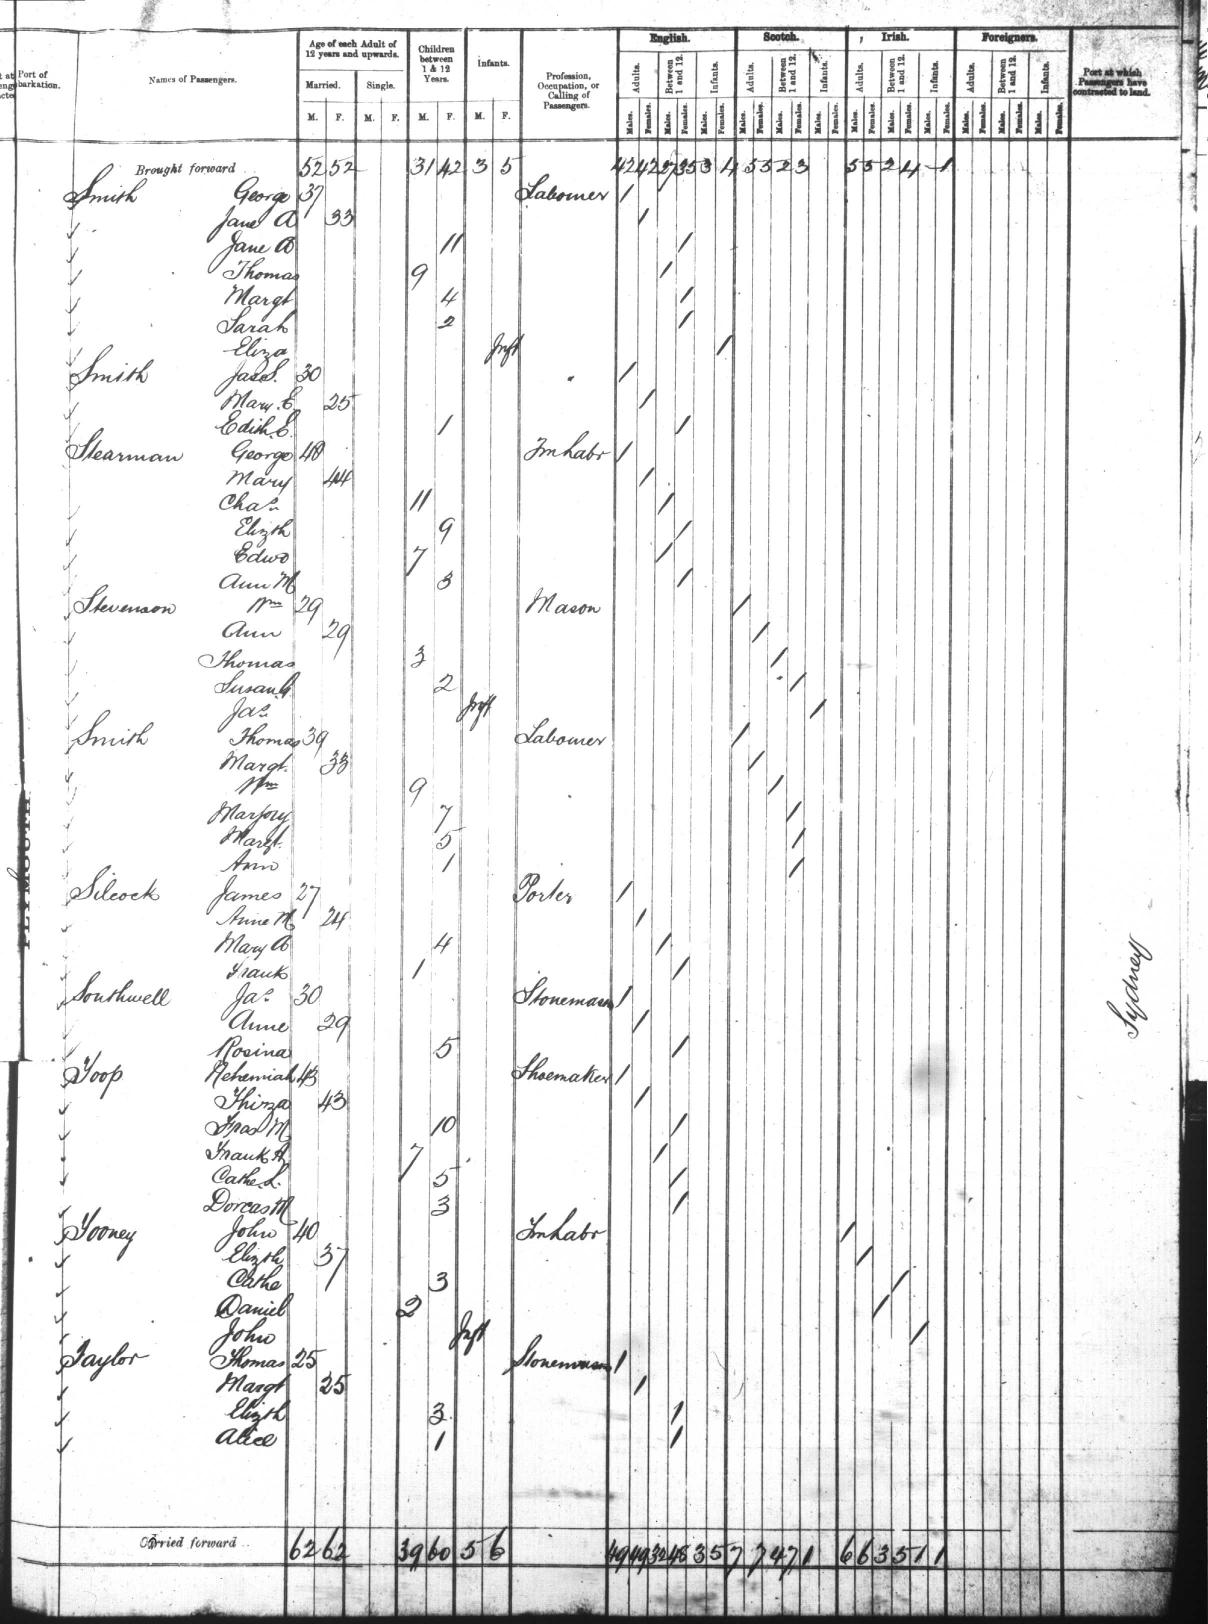 Port of Embarkation.
Names of Passengers.
Age of each Adult of 12 years and upwards.
Married. Single.
M. F. M. F.
Children between 1 & 12 Years.
M. F.
Infants.
M. F.
Profession, Occupation, or Calling of Passengers.
English. Scotch. Irish. Foreigners.
Adults. Between 1 and 12. Infants. Adults. Between 1 and 12. Infants. Adults. Between 1 and 12. Infants. Adults. Between 1 and 12. Infants.
Males. Females. Males. Females. Males. Females. Males. Females. Males. Females. Males. Females. Males. Females. Males. Females. Males. Females. Males. Females. Males. Females. Males. Females.
Port at which Passengers have contracted to land.
Brought forward 52 52 31 42 3 5 42 42 27 35 3 4 5 5 2 3 5 5 2 4 - 1
Smith George 37 Labourer 1
Jane A 33 1
Jane A 11 1
Thomas 9 1
Margt 4 1
Sarah 2 1
Eliza Inft 1
Smith Jas S. 30 " 1
Mary E 25 1
Edith E. 1 1
Stearman George 40 Fm labr 1
Mary 44 1
Chas. 11 1
Elizth 9 1
Edwd 7 1
Ann M 3 1
Stevenson Wm 29 Mason 1
Ann 29 1
Thomas 3 1
Susan G. 2 1
Jas. Inft 1
Smith Thomas 39 Labourer 1
Margt. 33 1
Wm 9 1
Marjory 7 1
Margt. 5 1
Ann 1 1
Silcock James 27 Porter 1
Anne M 24 1
Mary A 4 1
Frank 1 1
Southwell Jas. 30 Stonemason 1
Anne 29 1
Rosina 5 1
Toop Nehemiah 43 Shoemaker 1
Thirza 43 1
Fras M 10 1
Frank A 7 1
Cathe. L. 5 1
Dorcas M 3 1
Tooney John 40 Fm labr 1
Elizth 37 1
Cathe 3 1
Daniel 2 1
John Inft 1
Taylor Thomas 25 Stonemason 1
Margt 25 1
Elizth 3 1
Alice 1 1
PLYMOUTH
Sydney
Carried forward 62 62 39 60 5 6 49 49 32 48 3 5 7 7 4 7 1 6 6 3 5 1 1